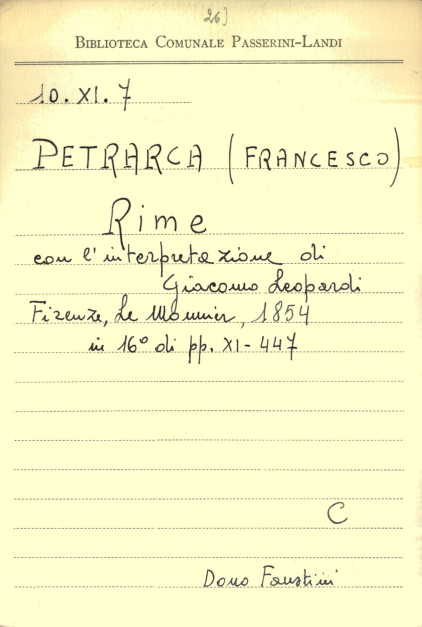 26)
BIBLIOTECA COMUNALE PASSERINI-LANDI
10. XI. 7
PETRARCA (FRANCESCO)
Rime
con l'interpretazione di
Giacomo Leopardi
Firenze, Le Monnier, 1854
in 16° di pp. XI-447
C
Dono Faustini